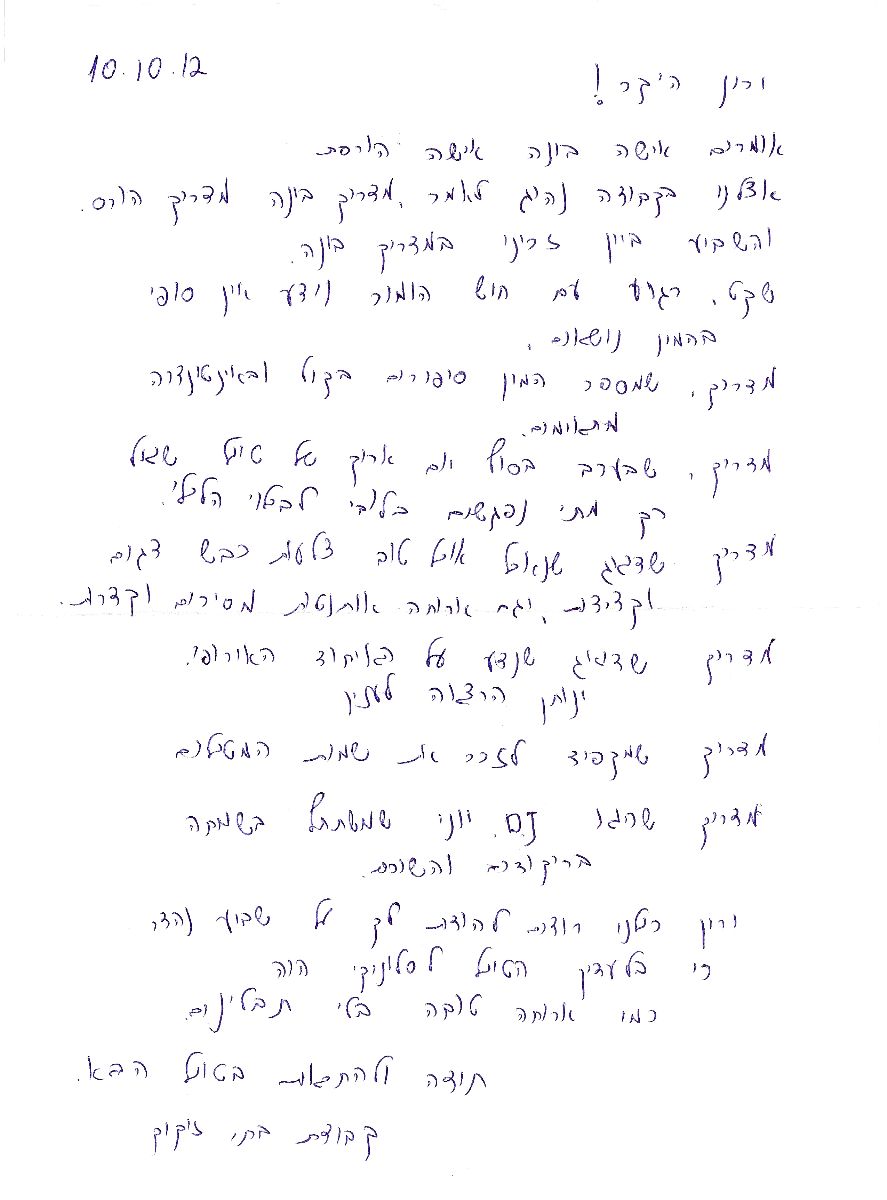 10.10.12
ירון היקר!
אומרים אישה בונה אישה הורסת
אצלנו בקבוצה נהוג לאמר, מדריך בונה מדריך הורס.
והשבוע זכינו במדריך בונה.
שקט, רגוע עם חוש הומור וידע אין סופי
בהמון נושאים,
מדריך, שמספר המון סיפורים בקול ובאינטונציה
מתאימים.
מדריך, שבערב בסוף יום ארוך של טיול שואל
רק מתי נפגשים בלובי לבילוי הלילי.
מדריך שדואג שנאכל אוכל טוב צלעות כבש דגים
וקציצות, וגם ארוחה אותנטית מסירים וקדרות.
מדריך שדואג שנדע על האיחוד האירופי.
ונותן הרצאה לענין
מדריך שמקפיד לזכור את שמות המטיילים
מדריך שהוא D.J. יווני שמשתתף בשמחה
בריקודים והשירים.
ירון כולנו רוצים להודות לך על שבוע נהדר
כי בלעדיך הטיול לסלוניקי היה
כמו ארוחה טובה בלי תבלינים.
תודה ולהתראות בטיול הבא.
קבוצת בתי זיקוק